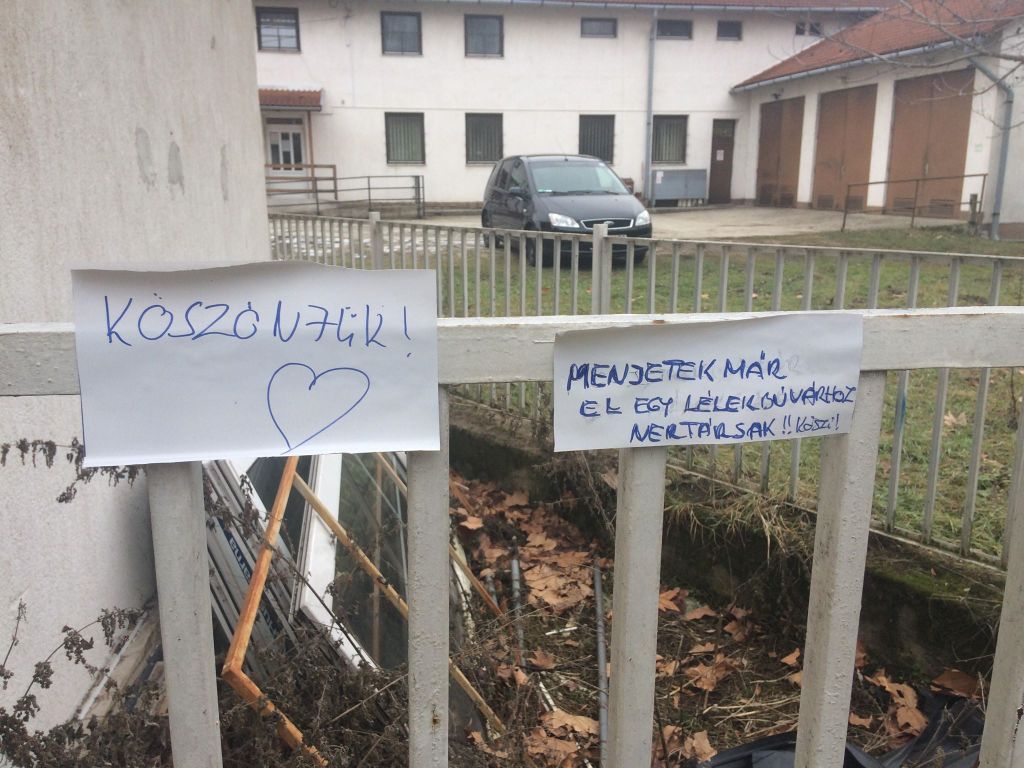 KÖSZÖNJÜK!
MENJETEK MÁR
EL EGY LÉLEKBÚVÁRHOZ
NERTÁRSAK!! KÖSZI!